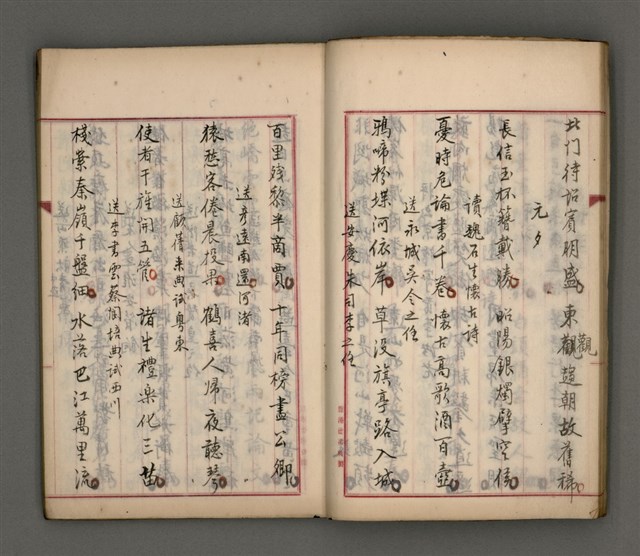 北门待詔賓朋盛 東觀趨朝故舊稀
觀
元夕
長信玉杯簪戴勝 昭陽銀燭擘空侯
讀魏石生懷古詩
憂時危論書千卷 懷古高歌酒百壺
送永城吳令之任
鴉啼粉堞河依岸 草没旗亭路入城
送安慶朱司李之任
百里殘黎半商賈 十年同榜盡公卿
送彥遠南還河渚
猿愁客倦晨投果 鶴喜人帰夜聽琴
送顧蒨来典試粤東
使者干旌開五管 諸生禮樂化三苗
送李書雲蔡閬培典試西川
棧縈秦嶺千盤細 水落巴江萬里流